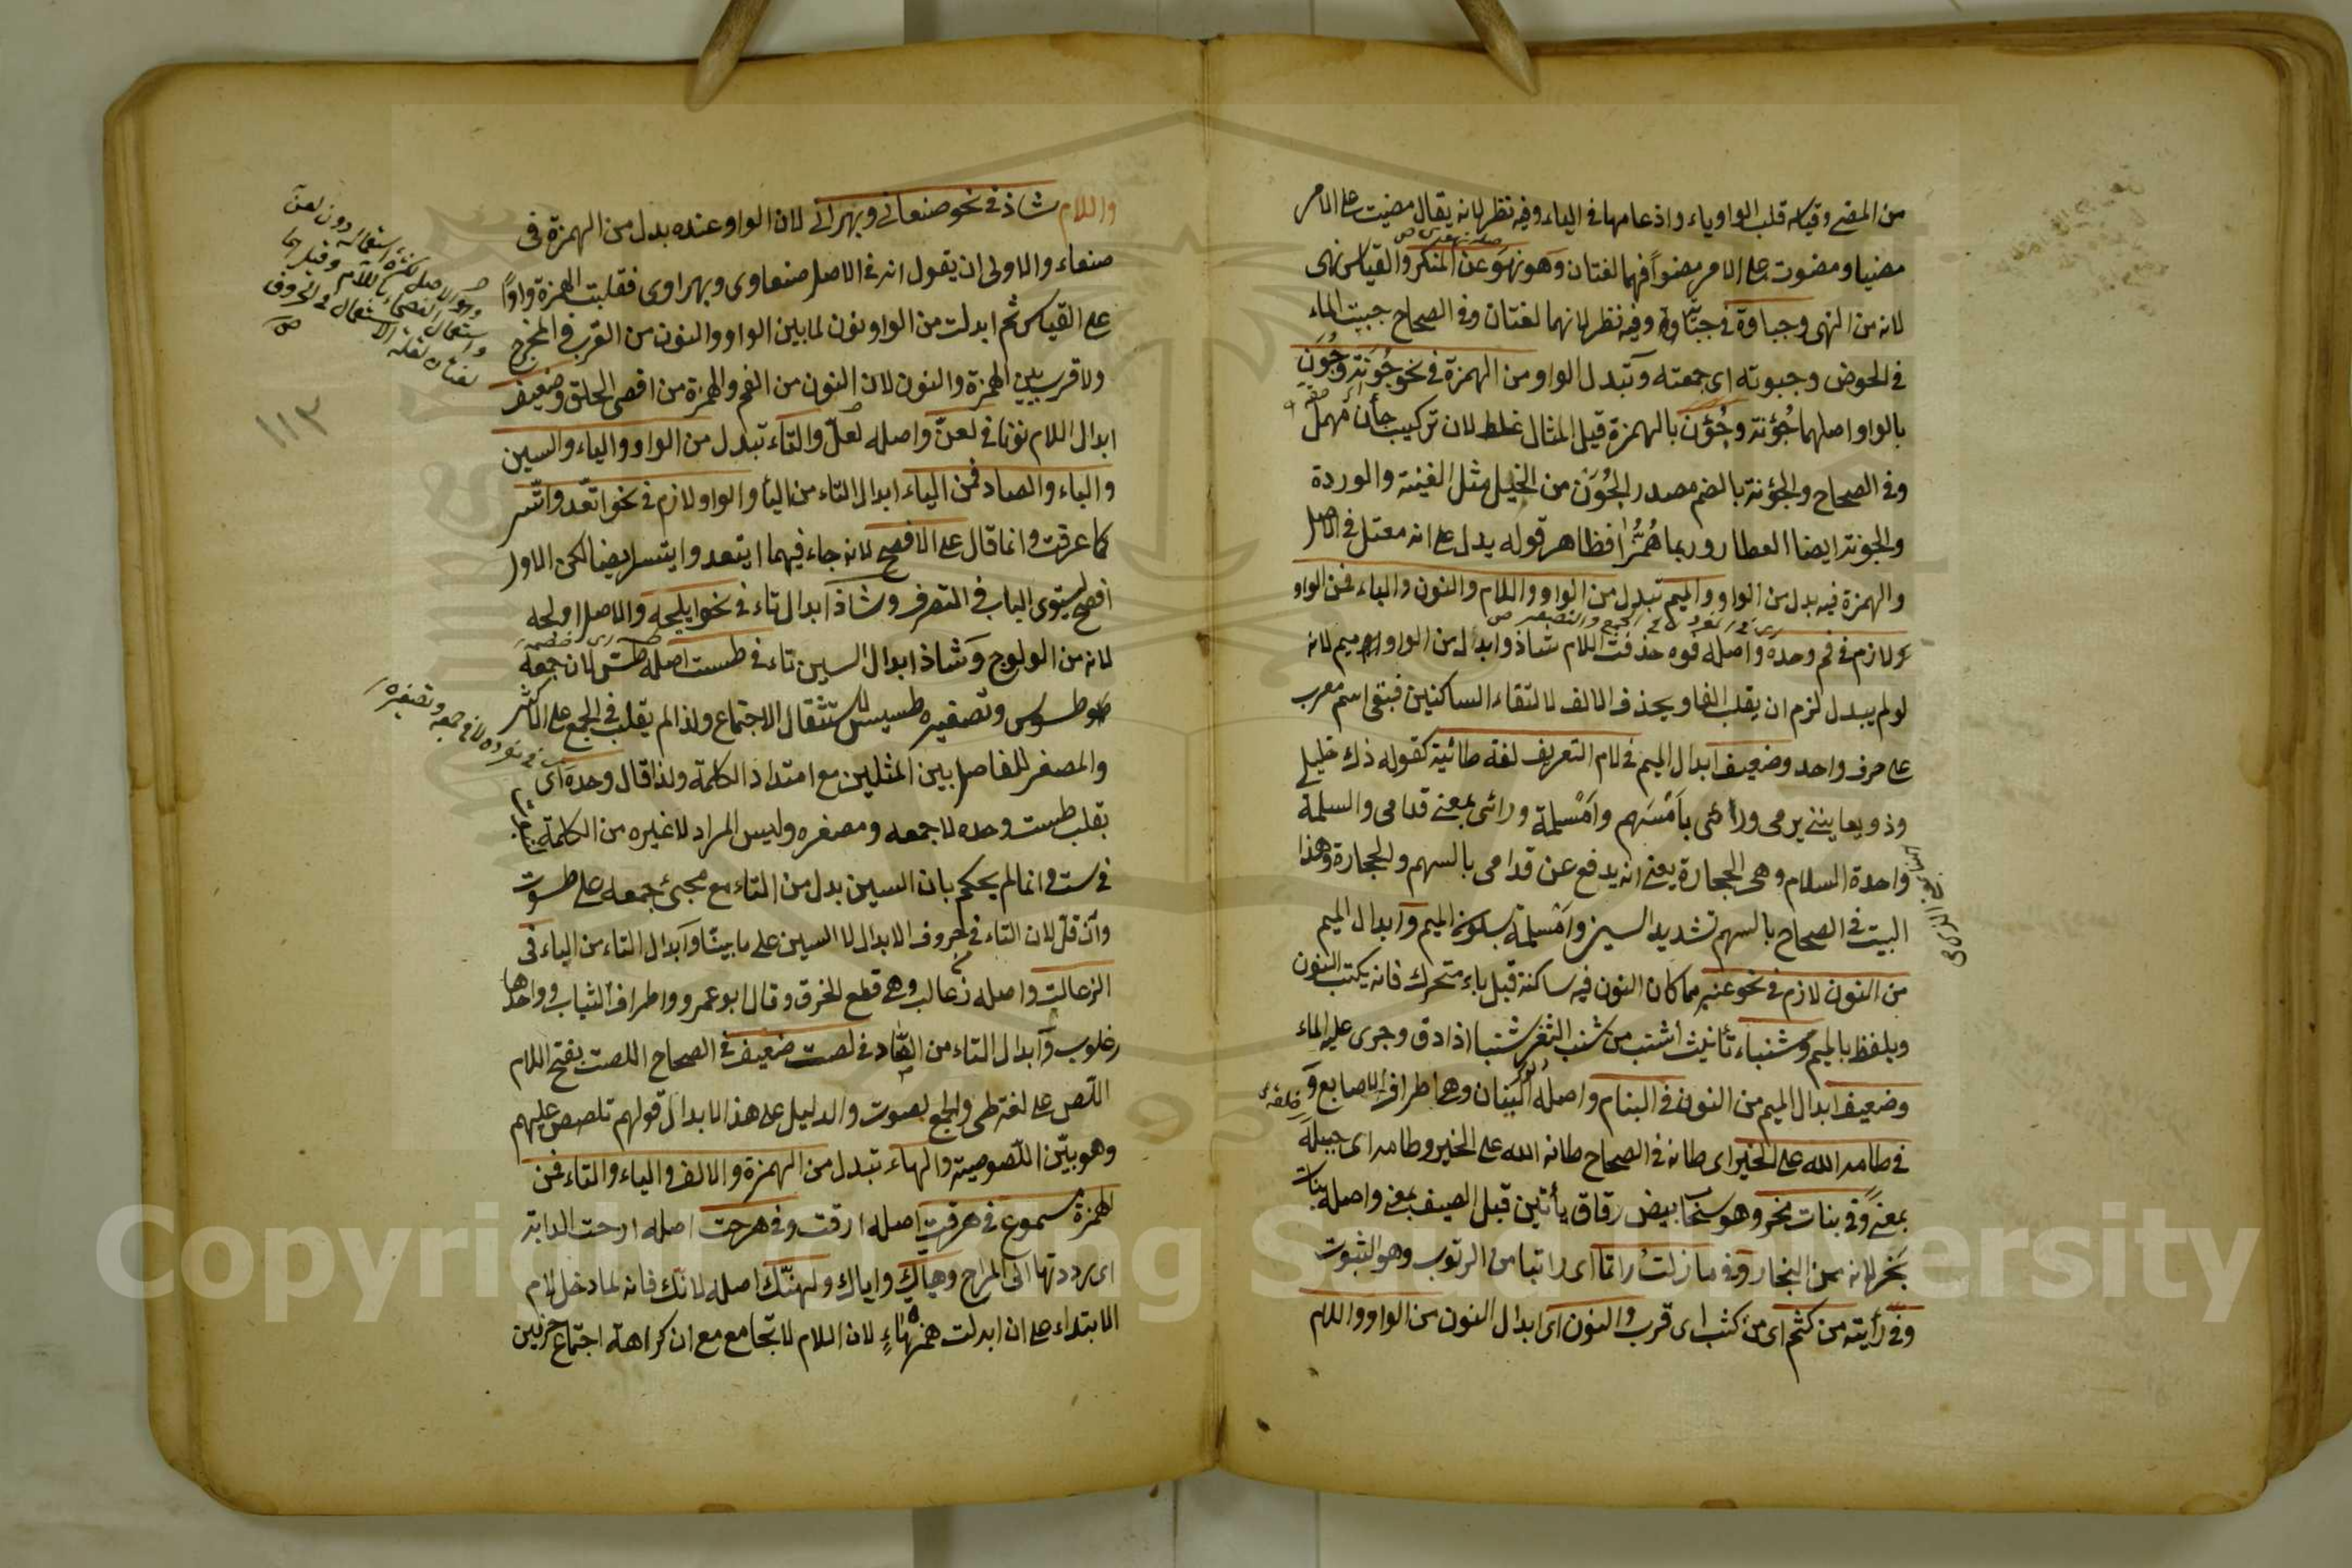 من المضي وقياسه قلب الواو ياء وادغامها في الياء وفيه نظر لانه يقال مضيت على الامر
مضيا ومضوت على الامر مضوا فهما لغتان وهو نهو عن المنكر والقياس نهى
لانه من النهى وجباوة في جباية وفيه نظر لانهما لغتان وفي الصحاح جبيت الماء
في الحوض وجبوته اى جمعته وتبدل الواو من الهمزة في نحو جونة وجون
بالواو اصلهما جؤنة وجؤن بالهمزة قيل المثال غلط لان تركيب جأن مهمل
وفي الصحاح والجؤنة بالضم مصدر الجون من الخيل مثل الغبنة والوردة
والجونة ايضا العطار وربما همز افظاهر قوله يدل على انه معتل في الاصل
والهمزة فيه بدل من الواو والميم تبدل من الواو واللام والنون والباء فمن الواو
لازم في فم وحده واصله فوه حذفت اللام شاذ وابدل من الواو ميم لانه
لو لم يبدل لزم ان يقلب الفا ويحذف الالف لالتقاء الساكنين فبقى اسم معرب
على حرف واحد وضعيف ابدال الميم في لام التعريف لغة طائية كقوله ذاك خليلي
وذو يعاينني يرمى ورائى بامسهم وامسلمة ورائى بمعنى قدامى والسلمة
واحدة السلام وهى الحجارة يعنى انه يدفع عن قدامى بالسهم والحجارة وهذا
البيت في الصحاح بالسهم تشديد السين وامسلمة بسكون الميم وابدال الميم
من النون لازم في نحو عنبر مما كان النون فيه ساكنة قبل باء متحرك فانه يكتب النون
ويلفظ بالميم وشنباء تأنيث اشنب من شنب الثغر شنبا اذا دق وجرى عليه الماء
وضعيف ابدال الميم من النون في البنام واصله البنان وهى اطراف الاصابع و
في طامه الله على الخير اى طانه في الصحاح طانه الله على الخير وطامه اى جبله
بمعنى وفي بنات مخر وهو سحاب بيض رقاق يأتين قبل الصيف بمعنى واصله بنات
بخر لانه من البخار وفي ما زلت راتما اى راتبا من الرتوب وهو الثبوت
وفي رأيته من كثم اى من كثب اى قرب والنون اى ابدال النون من الواو واللام
واللام شاذ في نحو صنعانى وبهرانى لان الواو عنده بدل من الهمزة في
صنعاء والاولى ان يقول انه في الاصل صنعاوى وبهراوى فقلبت الهمزة واوا
على القياس ثم ابدلت من الواو نون لما بين الواو والنون من القرب في المخرج
ولا قرب بين الهمزة والنون لان النون من الفم والهمزة من اقصى الحلق وضعيف
ابدال اللام نونا في لعن واصله لعل والتاء تبدل من الواو والياء والسين
والباء والصاد فمن الياء ابدال التاء من اليأ والواو لازم في نحو اتعد واتسر
كما عرفت وانما قال على الافصح لانه جاء فيهما ايتعد وايتسر ايضا لكن الاول
افصح ليستوى الباب في التصرف وشاذ ابدال تاء في نحو ايلجه والاصل اولجه
لانه من الولوج وشاذ ابدال السين تاء في طست اصله طس لان جمعه
طسوس وتصغيره طسيس لاستثقال الاجتماع ولذا لم يقلب في الجمع على الاكثر
والمصغر للفاصل بين المثلين مع امتداد الكلمة ولذا قال وحده اى
يقلب طست وحده لا جمعه ومصغره وليس المراد لا غيره من الكلمة
في ست وانما لم يحكم بان السين بدل من التاء مع مجئ جمعه على طسوت
وان قل لان التاء في حروف الابدال لا السين على ما بينا وابدال التاء من الباء في
الزعالت واصله ذعالب وهى قطع الخرق وقال ابو عمرو واطراف الثياب وواحدها
زعلوب وابدال التاء من الصاد في لصت ضعيف في الصحاح اللصت بفتح اللام
اللص على لغة طى والجمع لصوت والدليل على هذا الابدال قولهم تلصص عليهم
وهو بين اللصوصية والهاء تبدل من الهمزة والالف والياء والتاء فمن
الهمزة مسموع في هرقت اصله ارقت وفي هرحت اصله ارحت الدابة
اى رددتها الى المراح وهياك واياك ولهنك اصله لانك فانه لما دخل لام
الابتداء على ان ابدلت همزتها هاء لان اللام لا تجامع مع ان كراهة اجتماع حرفين
١١٣
Copyright © King Saud University